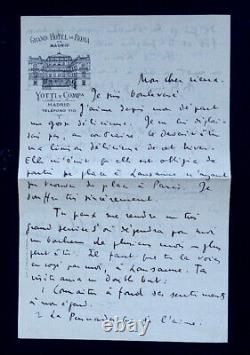 GRAND HÔTEL DE ROMA
MADRID
YOTTI Y COMPª
MADRID
TELEFONO 110
Mon cher vieux.
Je suis bouleversé
J'aime depuis mon départ
une gosse délicieuse. Je ne lui déplais
pas, au contraire. Je
une liaison délicieuse de cet hiver.
Elle m'écrit qu'elle est obligée de
partir se placer à Lausanne n'ayant
pu trouver de place à Paris. Je
souffre très sincèrement.
Tu peux me rendre un très
grand service d'où dépendra pour moi
un bonheur de plusieurs mois - plus
peut-être. Il faut que tu la voies
par moi à Lausanne. Ta
visite aura un double but:
1 Connaître à fond ses sentiments
à mon égard.
2 La Persuader que je l'aime.